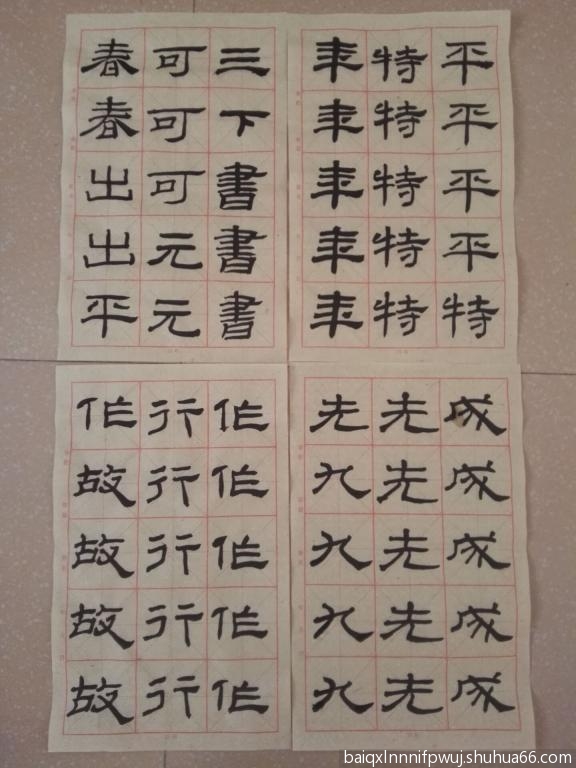 三下書書書
可可可元元
春春出出平
平平平平特
特特特特特
年年年年年
作作作作作
行行行行行
作故故故故
成成成成成
先先先先先
先九九九九
baiqxlnnnifpwuj.shuhua66.com